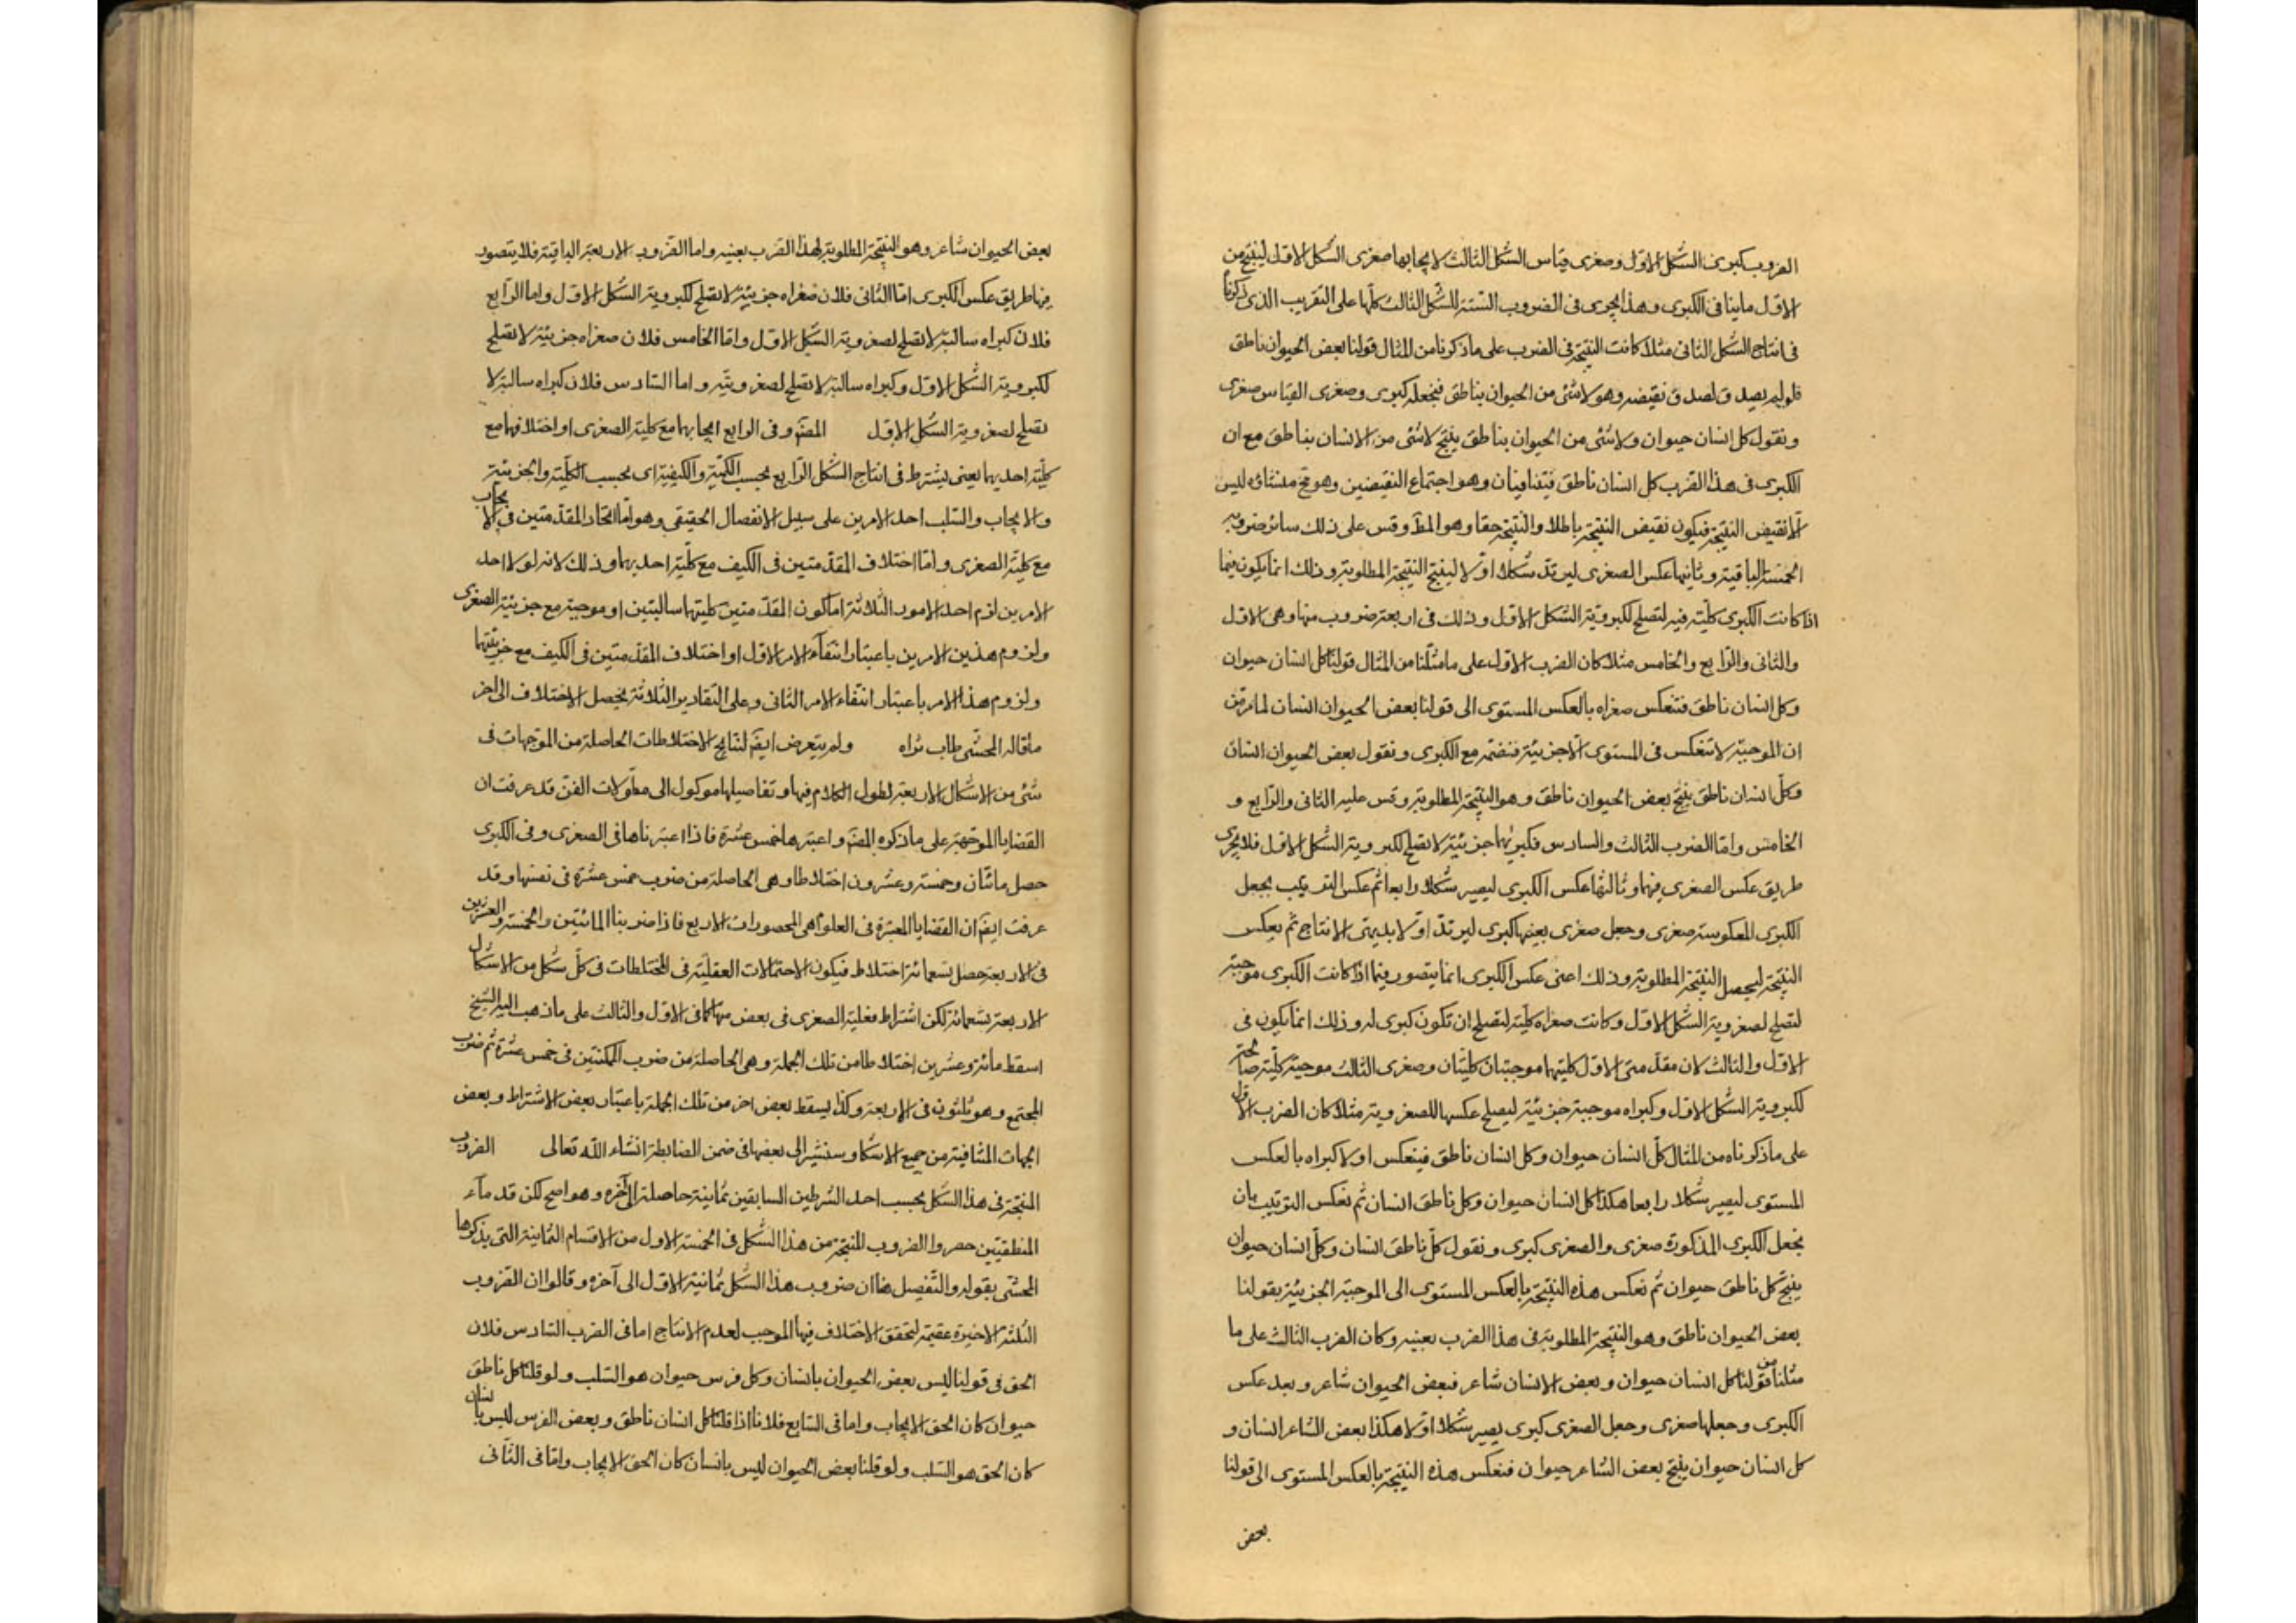 الضروب كبرى الشكل الاول وصغرى قياس الشكل الثالث لايجابها صغرى الشكل الاول لينتج من
الاول ماينافى الكبرى وهذا يجرى فى الضروب الستة للشكل الثالث كلها على التقريب الذى ذكرنا
فى انتاج الشكل الثانى مثلا كانت النتيجة فى الضرب على ماذكرنا من المثال قولنا بعض الحيوان ناطق
فلو لم يصدق لصدق نقيضه وهو لاشئ من الحيوان بناطق فنجعله كبرى وصغرى القياس صغرى
ونقول كل انسان حيوان ولاشئ من الحيوان بناطق ينتج لاشئ من الانسان بناطق مع ان
الكبرى فى هذا الضرب كل انسان ناطق فيتنافيان وهو اجتماع النقيضين وهو مح منشاؤه ليس
الا نقيض النتيجة فيكون نقيض النتيجة باطلا والنتيجة حقا وهو المط وقس على ذلك سائر ضروبه
الخمسة الباقية وثانيها عكس الصغرى ليرتد شكلا اولا لينتج النتيجة المطلوبة وذلك انما يكون فيما
اذا كانت الكبرى كلية فيه لتصلح لكبروية الشكل الاول وذلك فى اربعة ضروب منها وهى الاول
والثانى والرابع والخامس مثلا كان الضرب الاول على مامثلنا من المثال قولنا كل انسان حيوان
وكل انسان ناطق فتنعكس صغراه بالعكس المستوى الى قولنا بعض الحيوان انسان لما مر من
ان الموجبة لاتنعكس فى المستوى الا جزئية فنضم مع الكبرى ونقول بعض الحيوان انسان
وكل انسان ناطق ينتج بعض الحيوان ناطق وهو النتيجة المطلوبة وقس عليه الثانى والرابع و
الخامس واما الضرب الثالث والسادس فكبريهما جزئية لاتصلح لكبروية الشكل الاول فلا يجرى
طريق عكس الصغرى فيهما وثالثها عكس الكبرى ليصير شكلا رابعا ثم عكس الترتيب بجعل
الكبرى المعكوسة صغرى وجعل صغرى بعينها كبرى ليرتد اولا بديهى الانتاج ثم يعكس
النتيجة ليحصل النتيجة المطلوبة وذلك اعنى عكس الكبرى انما يتصور فيما اذا كانت الكبرى موجبة
لتصلح لصغروية الشكل الاول وكانت صغراه كلية لتصلح ان تكون كبرى له وذلك انما يكون فى
الاول والثالث لان مقدمتى الاول كليتهما موجبتان كليتان وصغرى الثالث موجبة كلية صالحة
لكبروية الشكل الاول وكبراه موجبة جزئية ليصلح عكسها للصغروية مثلا كان الضرب الاول
على ماذكرناه من المثال كل انسان حيوان وكل انسان ناطق فينعكس اولا كبراه بالعكس
المستوى ليصير شكلا رابعا هكذا كل انسان حيوان وكل ناطق انسان ثم نعكس الترتيب بان
نجعل الكبرى المذكورة صغرى والصغرى كبرى ونقول كل ناطق انسان وكل انسان حيوان
ينتج كل ناطق حيوان ثم نعكس هذه النتيجة بالعكس المستوى الى الموجبة الجزئية بقولنا
بعض الحيوان ناطق وهو النتيجة المطلوبة فى هذا الضرب بعينه وكان الضرب الثالث على ما
مثلنا من قولنا كل انسان حيوان وبعض الانسان شاعر فبعض الحيوان شاعر وبعد عكس
الكبرى وجعلها صغرى وجعل الصغرى كبرى يصير شكلا اولا هكذا بعض الشاعر انسان و
كل انسان حيوان ينتج بعض الشاعر حيوان فنعكس هذه النتيجة بالعكس المستوى الى قولنا
بعض
بعض الحيوان شاعر وهو النتيجة المطلوبة لهذا الضرب بعينه واما الضروب الاربعة الباقية فلا يتصور
فيها طريق عكس الكبرى اما الثانى فلان صغراه جزئية لاتصلح لكبروية الشكل الاول واما الرابع
فلان كبراه سالبة لاتصلح لصغروية الشكل الاول واما الخامس فلان صغراه جزئية لاتصلح
لكبروية الشكل الاول وكبراه سالبة لاتصلح لصغرويته واما السادس فلان كبراه سالبة لا
تصلح لصغروية الشكل الاول المصّ وفى الرابع ايجابهما مع كلية الصغرى او اختلافهما مع
كلية احديهما يعنى يشترط فى انتاج الشكل الرابع بحسب الكمية والكيفية اى بحسب الكلية والجزئية
والايجاب والسلب احد الامرين على سبيل الانفصال الحقيقى وهو اما اتحاد المقدمتين فى الايجاب
مع كلية الصغرى واما اختلاف المقدمتين فى الكيف مع كلية احديهما وذلك لانه لولا احد
الامرين لزم احد الامور الثلاثة اما كون المقدمتين كليتهما سالبتين او موجبة مع جزئية الصغرى
ولزوم هذين الامرين باعتبار انتفاء الامر الاول او اختلاف المقدمتين فى الكيف مع جزئيتهما
ولزوم هذا الامر باعتبار انتفاء الامر الثانى وعلى التقادير الثلاثة يحصل الاختلاف الى اخر
ماقاله المحشى طاب ثراه ولم يتعرض ايضً لنتايج الاختلاطات الحاصلة من الموجهات فى
شئ من الاشكال الاربعة لطول الكلام فيها وتفاصيلها موكول الى مطولات الفن قد عرفت ان
القضايا الموجهة على ماذكره المصّ واعتبرها خمس عشرة فاذا اعتبرناها فى الصغرى وفى الكبرى
حصل مائتان وخمسة وعشرون اختلاطا وهى الحاصلة من ضرب خمس عشرة فى نفسها وقد
عرفت ايضً ان القضايا المعتبرة فى العلوم هى المحصورات الاربع فاذا ضربنا المائتين والخمسة والعشرين
فى الاربعة حصل تسعمائة اختلاط فيكون الاحتمالات العقلية فى المختلطات فى كل شكل من الاشكال
الاربعة تسعمائة لكن اشتراط فعلية الصغرى فى بعض منها كما فى الاول والثالث على ماذهب اليه الشيخ
اسقط مائة وعشرين اختلاطا من تلك الجملة وهى الحاصلة من ضرب الممكنتين فى خمس عشرة ثم ضرب
المجتمع وهو ثلثون فى الاربعة وكذا يسقط بعض اخر من تلك الجملة باعتبار بعض الاشتراط وبعض
الجهات المنافية من جميع الاشكا وسنشير الى بعضها فى ضمن الضابطة انشاء الله تعالى الضروب
المنتجة فى هذا الشكل بحسب احد الشرطين السابقين ثمانية حاصلة الى آخره وهو اصح لكن قدماء
المنطقيين حصروا الضروب المنتجة من هذا الشكل فى الخمسة الاول من الاقسام الثمانية التى يذكرها
المحشى بقوله والتفصيل هاا ان ضروب هذا الشكل ثمانية الاول الى آخره وقالوا ان الضروب
الثلثة الاخيرة عقيمة لتحقق الاختلاف فيها الموجب لعدم الانتاج اما فى الضرب السادس فلان
الحق فى قولنا ليس بعض الحيوان بانسان وكل فرس حيوان هو السلب ولو قلنا كل ناطق
حيوان كان الحق الايجاب واما فى السابع فلانا اذا قلنا كل انسان ناطق وبعض الفرس ليس بانسان
كان الحق هو السلب ولو قلنا بعض الحيوان ليس بانسان كان الحق الايجاب واما فى الثانى